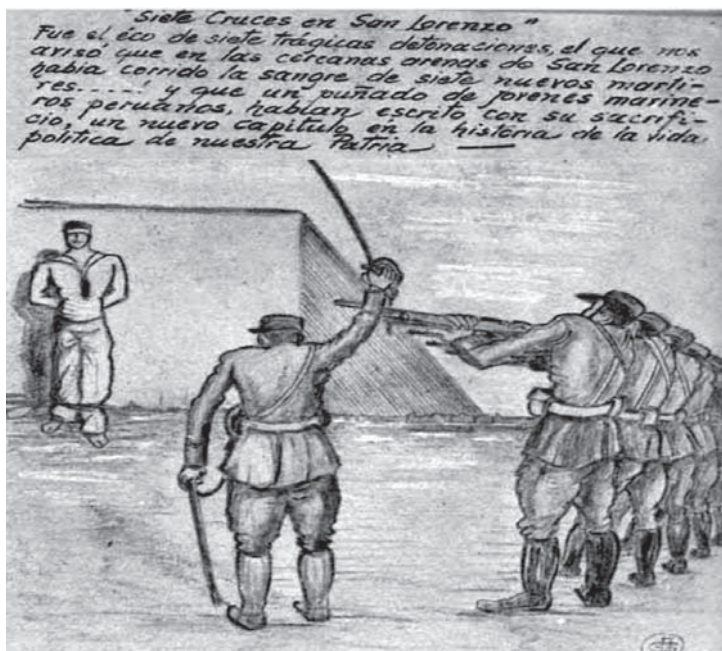 "Siete Cruces en San Lorenzo"
Fue el éco de siete trágicas detonaciones, el que nos
avisó que en las cercanas arenas do San Lorenzo
habia corrido la sangre de siete nuevos marti-
res.....! y que un puñado de jovenes marine-
ros peruanos, habian escrito con su sacrifi-
cio, un nuevo capitulo en la historia de la vida
politica de nuestra Patria —